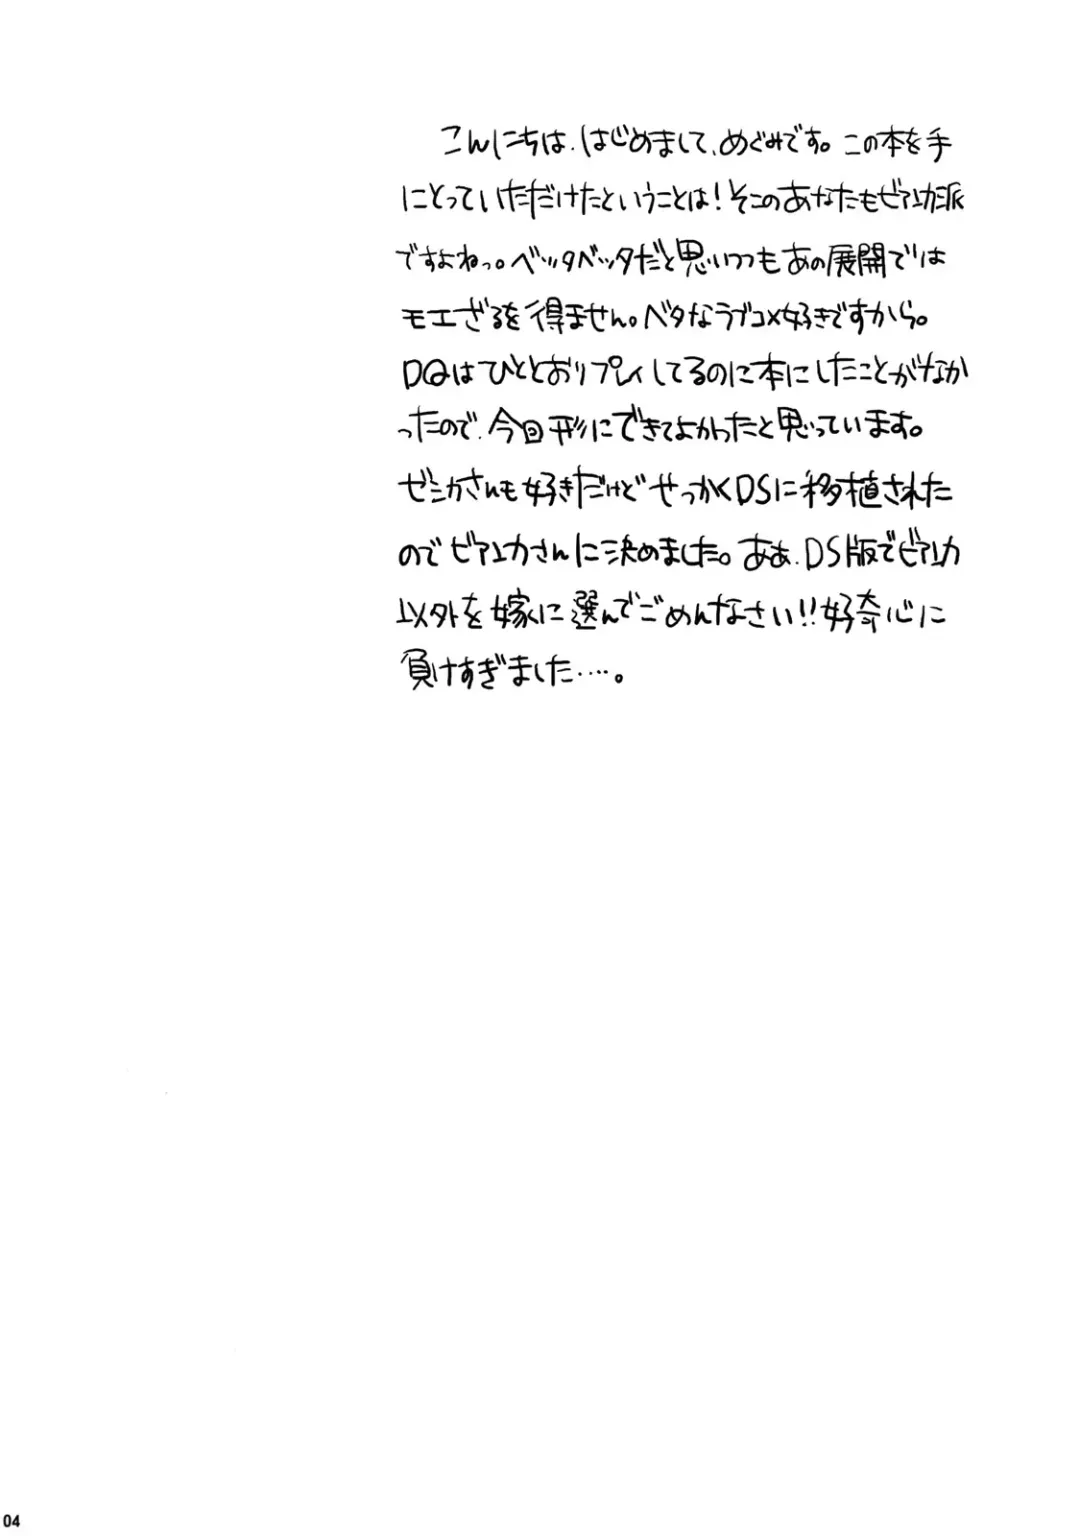 こんにちは、はじめまして、めぐみです。この本を手
にとっていただけたということは!そこのあなたもビアンカ派
ですよねっ。ベッタベッタだと思いつつもあの展開では
モエざるを得ません。ベタなラブコメ好きですから。
DQはひととおりプレイしてるのに本にしたことがなか
ったので、今回形にできてよかったと思っています。
ゼシカさんも好きだけどせっかくDSに移植された
のでビアンカさんに決めました。ああ、DS版でビアンカ
以外を嫁に選んでごめんなさい!!好奇心に
負けすぎました....。
04